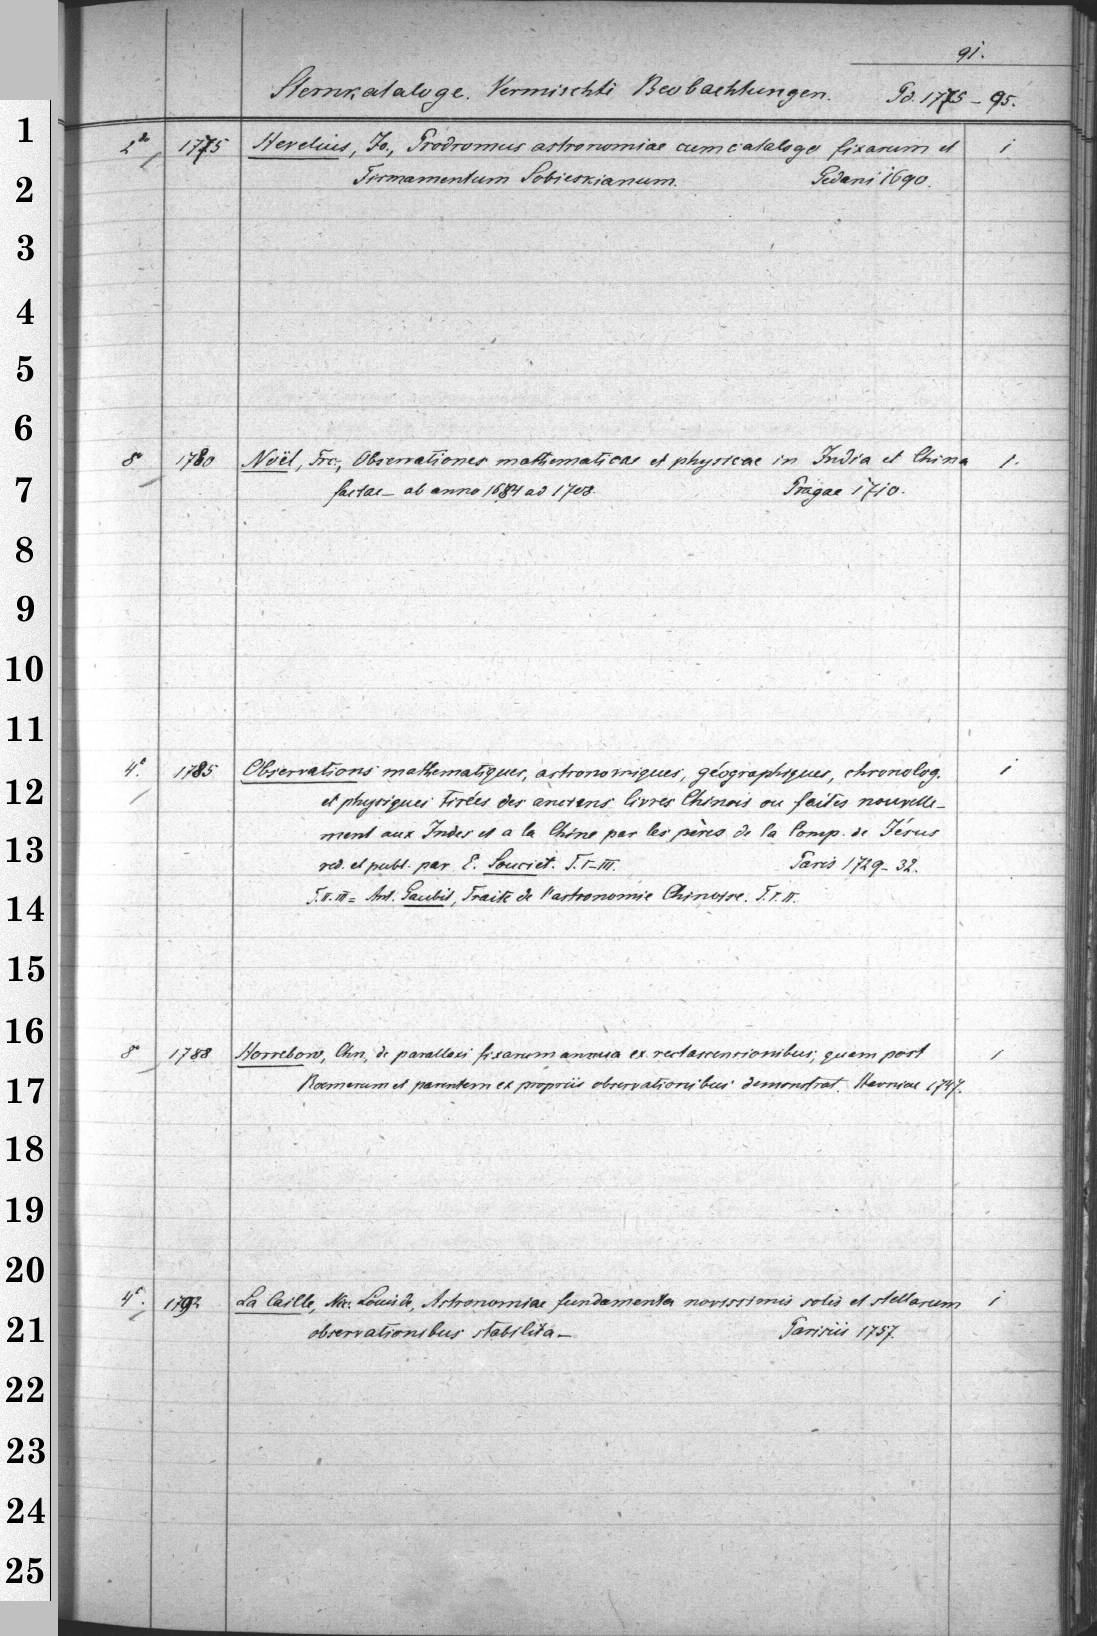 91.
Sternkataloge. Vermischte Beobachtungen. Pd. 1775-95.
1
2° 1775 Hevelius, Jo., Prodromus astronomiae cum catalogo fixarum et 1
2
Firmamentum Sobieskianum. Gedani 1690.
3
4
5
6
8° 1780 Noël, Frc., Observationes mathematicae et physicae in India et China 1.
7
factae — ab anno 1684 ad 1708. Pragae 1710.
8
9
10
11
4°. 1785 Observations mathematiques, astronomiques, géographiques, chronolog. 1
12
et physiques tirées des anciens livres Chinois ou faites nouvelle-
ment aux Indes et a la Chine par les pères de la Comp. de Jésus
13
red. et publ. par E. Souciet. T. I-III. Paris 1729-32.
14
T. II. III = Ant. Gaubil, Traité de l'astronomie Chinoise. T. I. II.
15
16
8° 1788 Horrebow, Chn., de parallaxi fixarum annua ex rectascensionibus, quam post 1
17
Roemerum et parentem ex propriis observationibus demonstrat. Havniae 1747.
18
19
20
4°. 1792 La Caille, Nic. Louis de, Astronomiae fundamenta novissimis solis et stellarum 1
21
observationibus stabilita — Parisiis 1757.
22
23
24
25